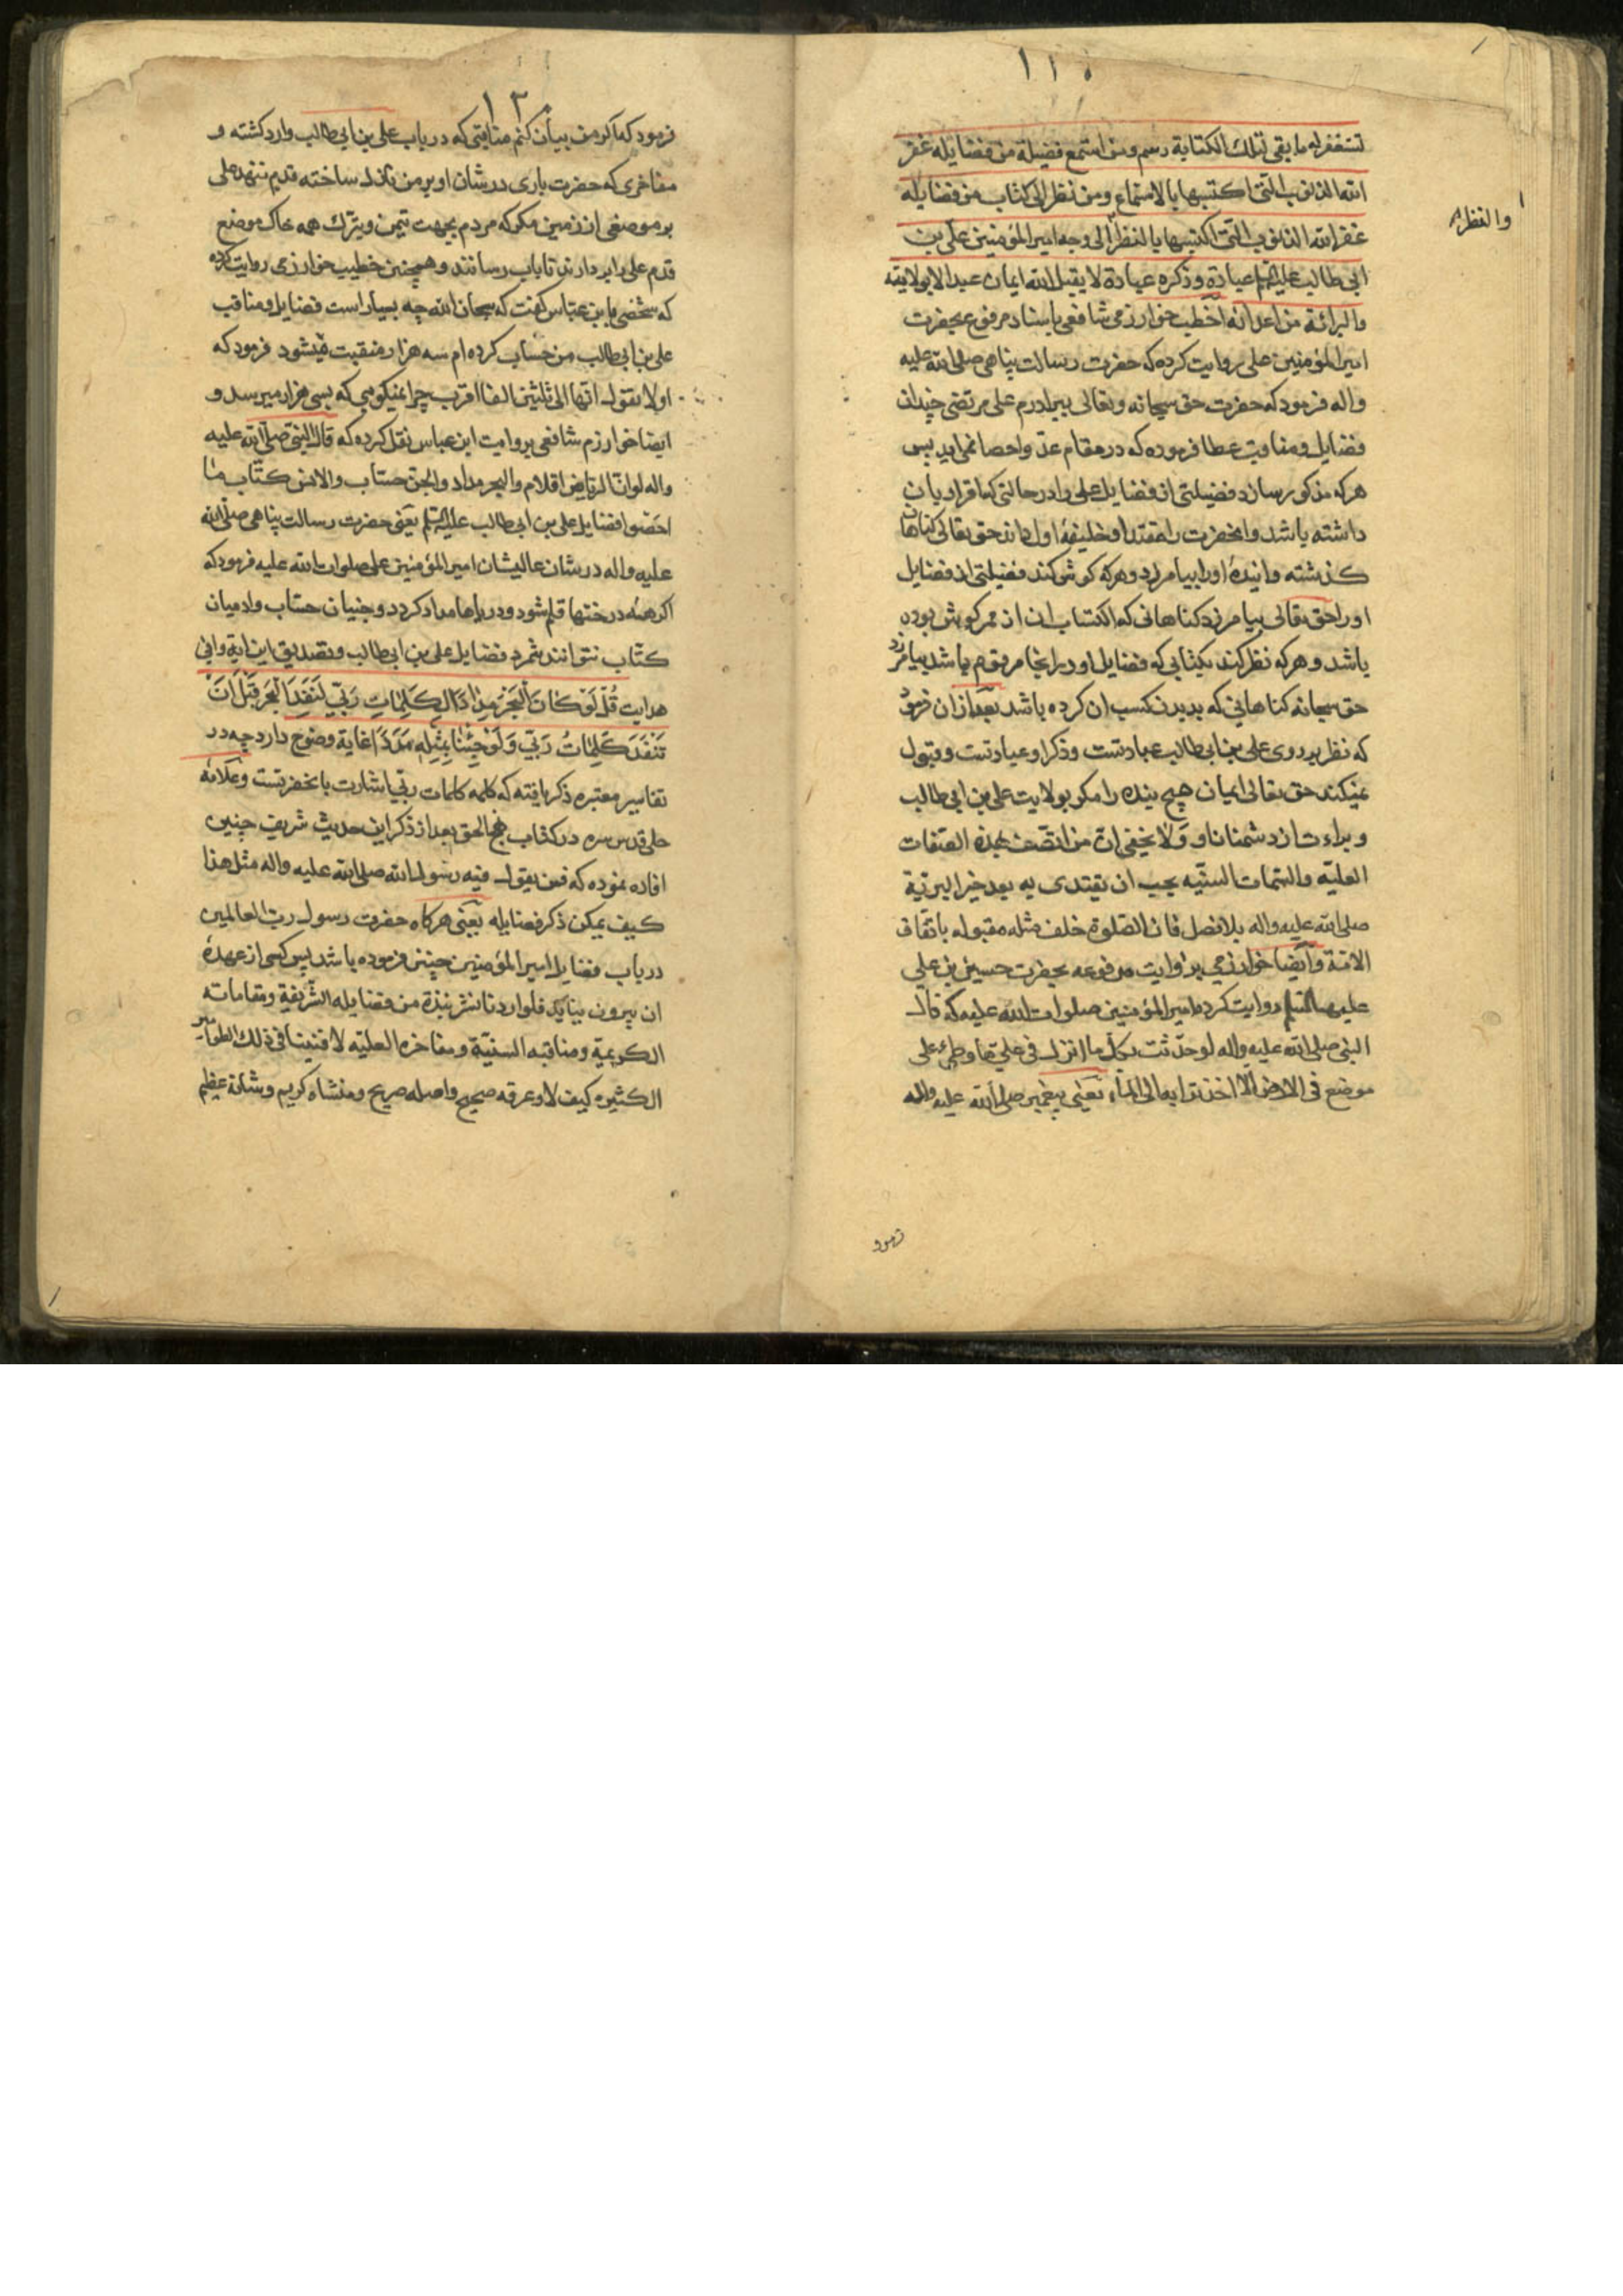 ۱۱۰
تستغفر له ما بقی لتلک الکتابة رسم ومن استمع فضیلة من فضایله غفر
الله الذنوب التی اکتسبها بالاستماع ومن نظر الی کتاب من فضایله
غفر الله الذنوب التی اکتسبها بالنظر الی وجه امیر المؤمنین علی بن
والنظر
ابی طالب علیه السلم عبادة وذکره عبادة لا یقبل الله ایمان عبد الا بولایته
والبرائة من اعدائه اخطب خوارزمی شافعی باسناد مرفوع بحضرت
امیر المؤمنین علی روایت کرده که حضرت رسالت پناهی صلی الله علیه
واله فرمود که حضرت حق سبحانه وتعالی ببرادرم علی مرتضی چندان
فضایل ومناقب عطا فرموده که در مقام عد واحصا نمی اید پس
هر که مذکور سازد فضیلتی از فضایل علی را در حالتی که اقرار بان
داشته باشد وانحضرت را مقتدا وخلیفهٔ اول داند حق تعالی کناهان
کذشته وایندهٔ او را بیامرزد وهر که کوش کند فضیلتی از فضایل
او را حق تعالی بیامرزد کناهانی که اکتساب ان از ممر کوش بوده
باشد وهر که نظر کند بکتابی که فضایل او در انجا مرقوم باشد بیامرزد
حق سبحانه کناهانی که بدیدن کسب ان کرده باشد بعد از ان فرمود
که نظر بر روی علی بن ابی طالب عبادتست وذکر او عبادتست وقبول
نمیکند حق تعالی ایمان هیچ بنده را مکر بولایت علی بن ابی طالب
وبراءت از دشمنان او ولا یخفی ان من اتصف بهذه الصفات
العلیة والسمات السنیه یجب ان یقتدی به بعد خیر البریة
صلی الله علیه واله بلا فصل فان الصلوة خلف مثله مقبوله باتفاق
الامة وایضا خوارزمی بروایت مرفوعه بحضرت حسین بن علی
علیهما السلم روایت کرده امیر المؤمنین صلوات الله علیه که قال
النبی صلی الله علیه واله لو حدثت بکل ما انزل فی علی ما وطی علی
موضع فی الارض الا اخذ ترابه الی الماء یعنی پیغمبر صلی الله علیه واله
فرمود
۱۲۰
فرمود که اکر من بیان کنم مناقبی که در باب علی بن ابی طالب وارد کشته و
مفاخری که حضرت باری در شان او بر من نازل ساخته قدم ننهد علی
بر موضعی از زمین مکر که مردم بجهت تیمن وتبرک همه خاک موضع
قدم علی را بردارند تا باب رسانند وهمچنین خطیب خوارزمی روایت کرده
که شخصی بابن عباس کفت که سبحان الله چه بسیار است فضایل ومناقب
علی بن ابی طالب من حساب کرده ام سه هزار منقبت میشود فرمود که
اولا تقول انها الی ثلثین الفا اقرب چرا نمیکویی که بسی هزار میرسد و
ایضا خوارزم شافعی بروایت ابن عباس نقل کرده که قال النبی صلی الله علیه
واله لو ان الریاض اقلام والبحر مداد والجن حساب والانس کتاب ما
احصوا فضایل علی بن ابی طالب علیه السلم یعنی حضرت رسالت پناهی صلی الله
علیه واله در شان عالیشان امیر المؤمنین علی صلوات الله علیه فرمود که
اکر همهٔ درختها قلم شود ودریاها مداد کردد وجنیان حساب وادمیان
کتاب نتوانند شمرد فضایل علی بن ابی طالب وتصدیق این ایة وافی
هدایت قُلْ لَوْ كَانَ الْبَحْرُ مِدَادًا لِكَلِمَاتِ رَبِّي لَنَفِدَ الْبَحْرُ قَبْلَ أَنْ
تَنْفَدَ كَلِمَاتُ رَبِّي وَلَوْ جِئْنَا بِمِثْلِهِ مَدَدًا غایة وضوح دارد چه در
تفاسیر معتبره ذکر یافته که کلمه کلمات ربی اشارت بانحضرتست وعلامه
حلی قدس سره در کتاب نهج الحق بعد از ذکر این حدیث شریف چنین
افاده نموده که فمن یقول فیه رسول الله صلی الله علیه واله مثل هذا
کیف یمکن ذکر فضایله یعنی هرکاه حضرت رسول رب العالمین
در باب فضایل امیر المؤمنین چنین فرموده باشد پس کسی از عهدهٔ
ان بیرون نیاید فلو اردنا نشر نبذة من فضایله الشریفة ومقاماته
الکریمة ومناقبه السنیة ومفاخره العلیه لافنینا فی ذلک الطوامیر
الکثیره کیف لا وعرقه صحیح واصله صریح ومنشاه کریم وشانه عظیم